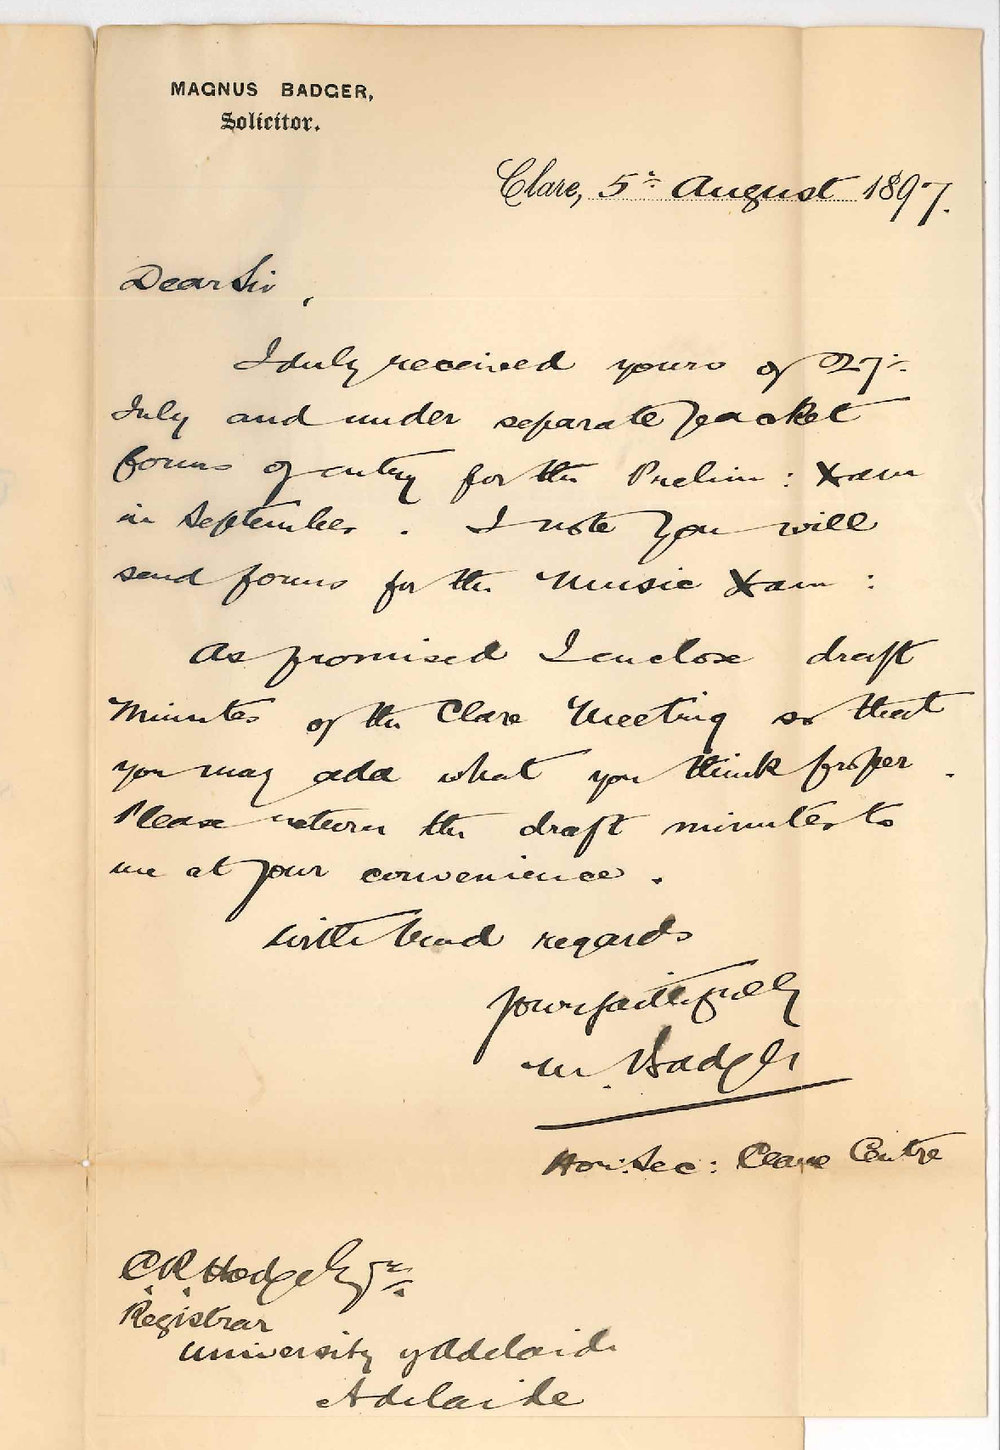 MAGNUS BADGER,
Solicitor.
Clare, 5th August 1897.
Dear Sir,
I duly received yours of 27th
July and under separate packet
forms of entry for the Prelim: Xam
in September. I note you will
send forms for the Music Xam:
As promised I enclose draft
Minutes of the Clare Meeting so that
you may add what you think proper.
Please return the draft minutes to
me at your convenience.
With kind regards
Yours faithfully
M. Badger
Hon: Sec: Clare Centre
C.R. Hodge Esqre
Registrar
University of Adelaide
Adelaide